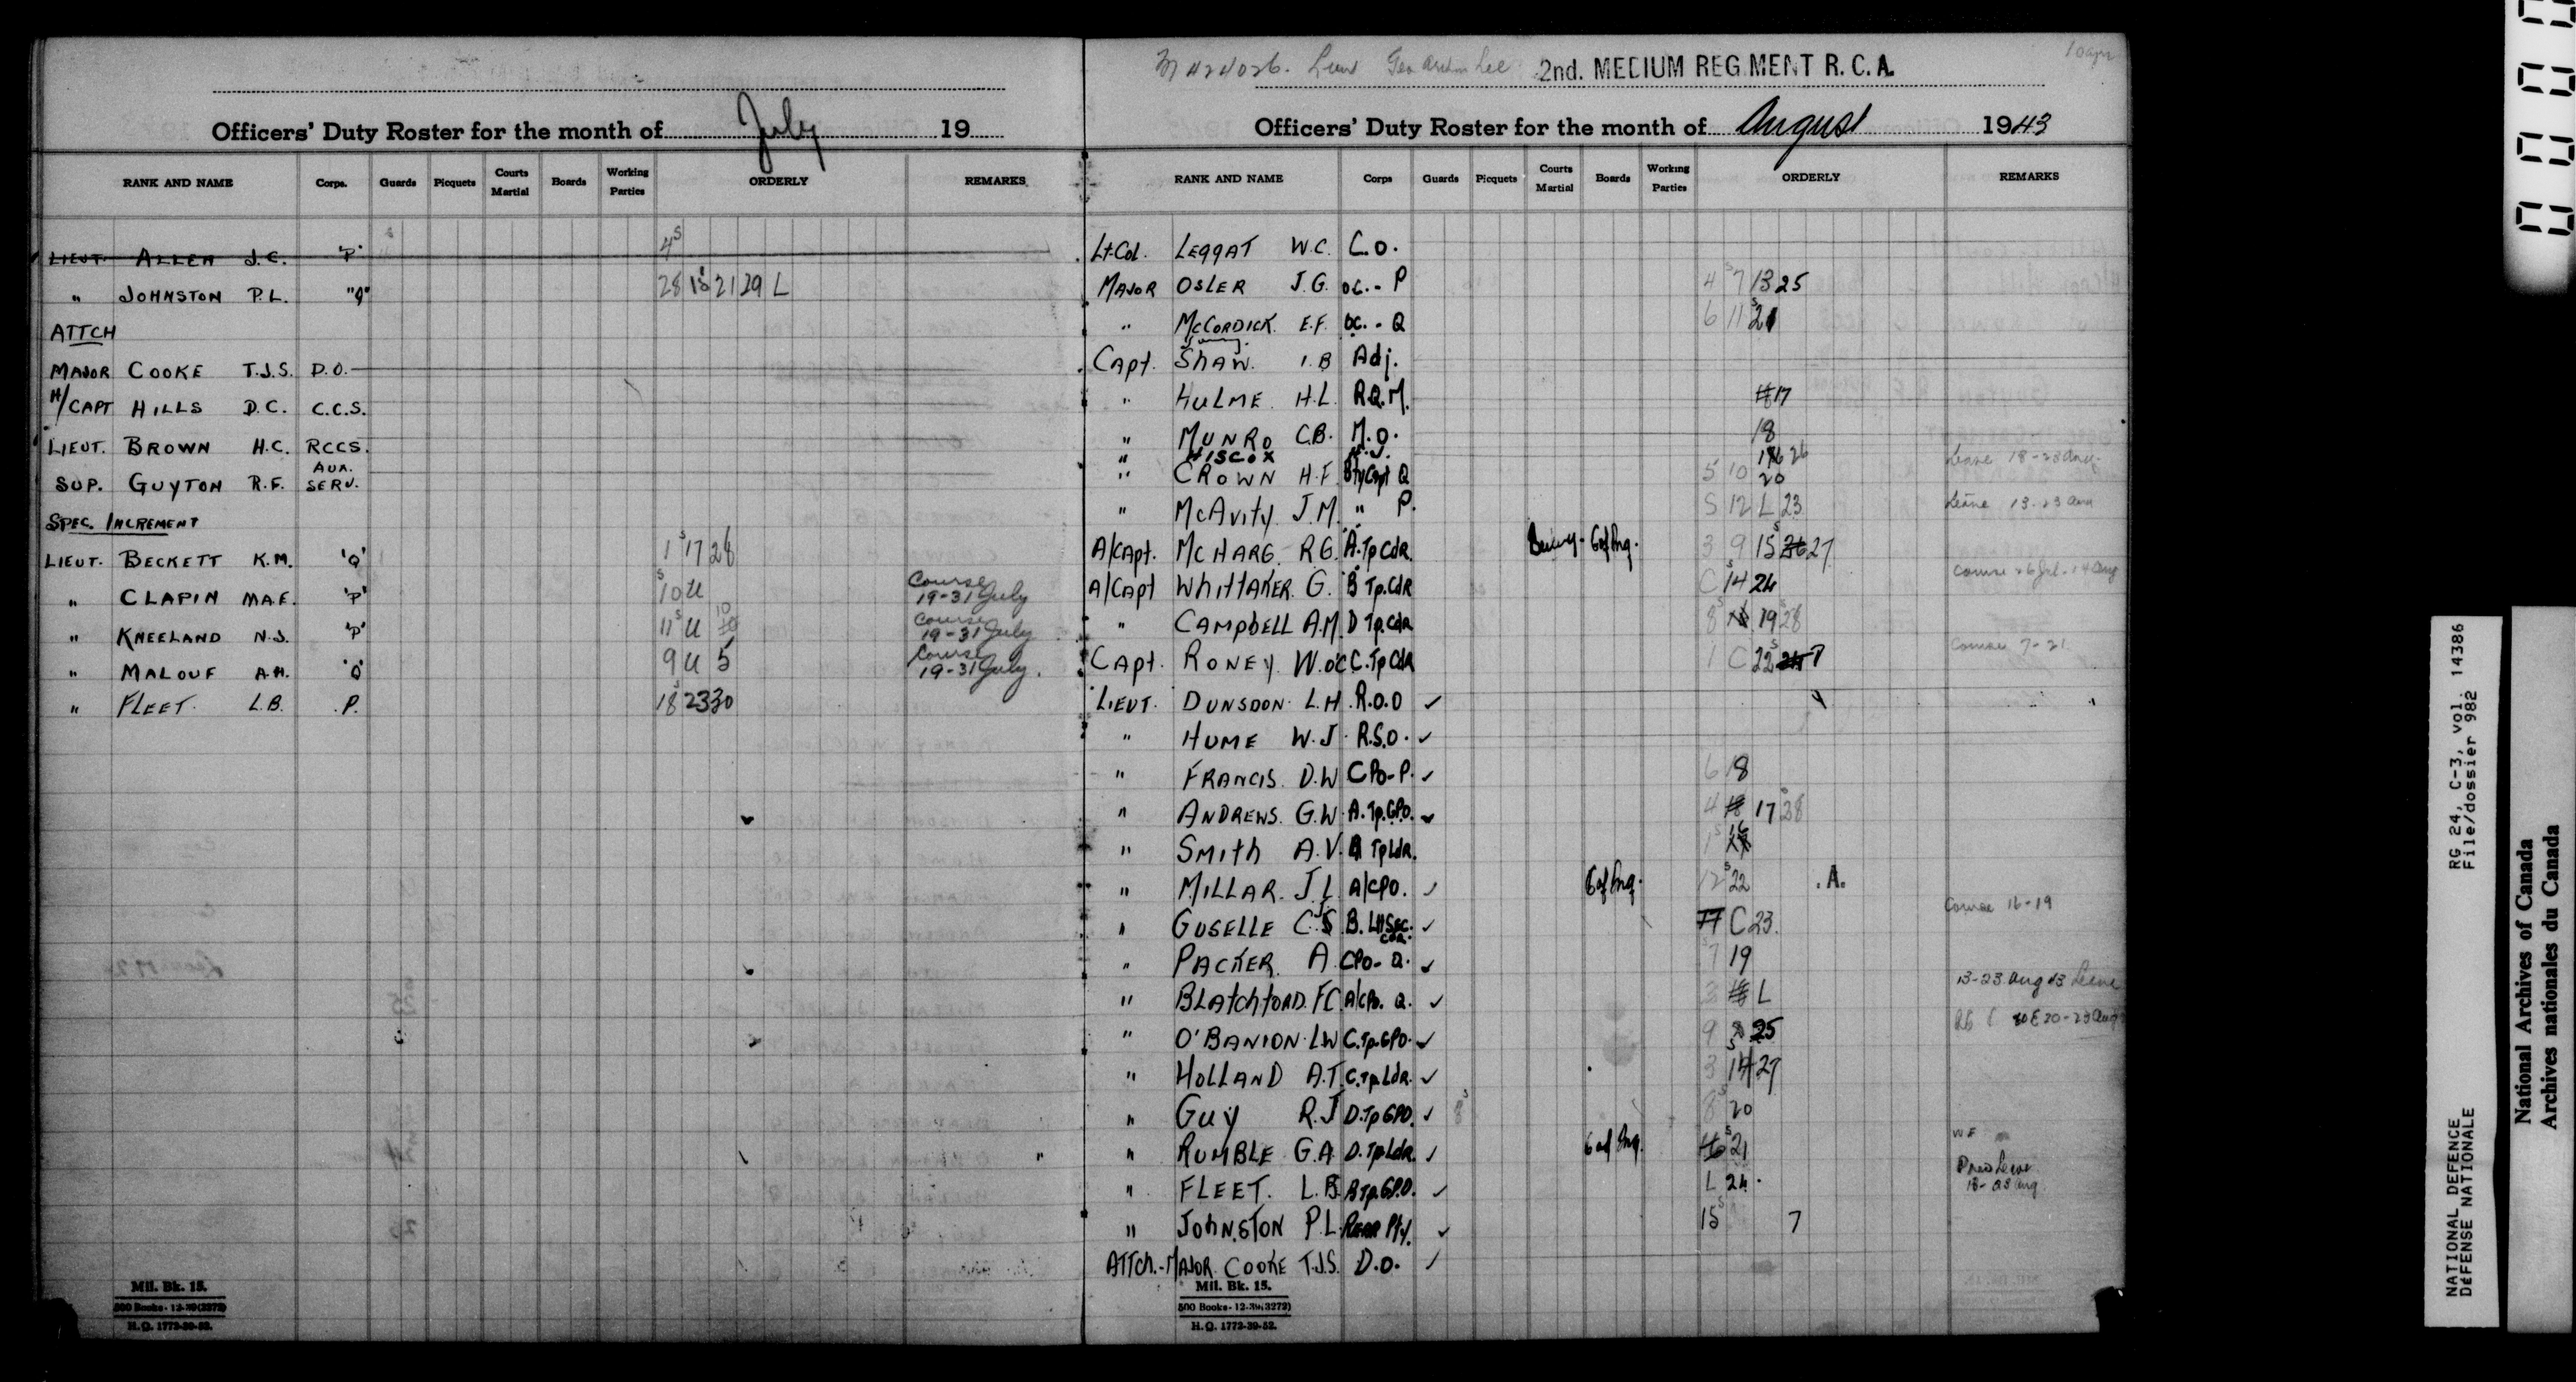 Officers' Duty Roster for the month of July 19
RANK AND NAME Corps. Guards Picquets Courts Martial Boards Working Parties ORDERLY REMARKS
LIEUT. ALLEN J.C. 'P' 4 S
" JOHNSTON P.L. "Q" 28 18 21 29 L
ATTCH
MAJOR COOKE T.J.S. D.O.
H/CAPT HILLS D.C. C.C.S.
LIEUT. BROWN H.C. RCCS.
SUP. GUYTON R.F. AUX. SERV.
SPEC. INCREMENT
LIEUT. BECKETT K.M. 'Q' 1 S 17 28
" CLAPIN MA.E. 'P' S 10 U Course 19-31 July
" KNEELAND N.S. 'P' 11 S U 10 Course 19-31 July
" MALOUF A.H. 'Q' 9 U 5 Course 19-31 July.
" FLEET. L.B. P. 18 S 23 30
Mil. Bk. 15.
500 Books-12-39(3272)
H.Q. 1772-39-52.
M 424026. 2nd. MEDIUM REGIMENT R.C.A.
Officers' Duty Roster for the month of August 1943
RANK AND NAME Corps Guards Picquets Courts Martial Boards Working Parties ORDERLY REMARKS
Lt-Col. LEGGAT W.C. C.O.
MAJOR OSLER J.G. OC.- P 4 S 7 13 25
" McCORDICK E.F. OC.- Q 6 11 S 21
Capt. SHAW. I.B Adj.
" HULME. H.L. R.Q.M. 17
" MUNRO C.B. M.O. 18
" HISCOX 26
" CROWN H.F. Bty Capt Q 5 10 20 Leave 18-28 Aug.
" McAvity J.M. " P. S 12 L 23 Leave 13-23 Aug
A/Capt. McHARG. R.G. A.Tp Cdr. 3 9 15 S 26 27
A/Capt WhittAKER. G. B Tp.Cdr C S 14 24 Course 26 Jul-14 Aug
" CAMPbELL A.M. D Tp.Cdr 8 S 19 28
Capt. RONEY. W.O'C C.Tp Cdr 1 C 22 S Course 7-21
LIEUT. DUNSDON L.H. R.O.O ✓
" HUME W.J. R.S.O. ✓
" FRANCIS. D.W CPO-P. ✓ 6 18
" ANDREWS. G.W. A.Tp.GPO. ✓ 4 18 17 S 28
" SMith A.V. Tp Ldr. 1 S
" MILLAR. J.L. A/CPO. ✓ 12 S 22 .A.
" GUSELLE C.S B. LH Sec. Cdr. ✓ C 23. Course 16-19
" PACKER. A CPO-Q. ✓ S 7 19
" BLAtchfORD. F.C A/CPO. Q. ✓ 3 L 13-23 Aug 43 Leave
" O'BANION. L.W C.Tp.GPO. ✓ 9 25 20-23 Aug
" HOLLAND A.T. C.Tp.Ldr. ✓ 3 14 29
" GUY R.J D.Tp GPO. ✓ 8 S 8 S 20
" RUMBLE G.A. D.Tp.Ldr. ✓ 16 S 21
" FLEET. L.B. B Tp.GPO. ✓ L 24. Leave 18-28 Aug.
" JOhNSTON P.L. Rear Pty. ✓ 15 S 7
ATTch.-MAJOR COOKE T.J.S. D.O. ✓
Mil. Bk. 15.
500 Books-12-39(3272)
H.Q. 1772-39-52.
RG 24, C-3, vol. 14386
File/dossier 982
NATIONAL DEFENCE
DÉFENSE NATIONALE
National Archives of Canada
Archives nationales du Canada